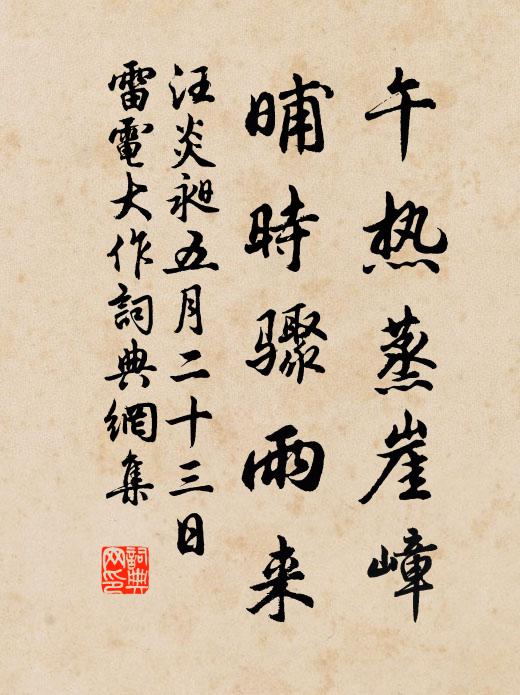 午热蒸崖嶂
晡時骤雨来
汪炎昶五月二十三日
雷電大作詞典網集
詞典网印